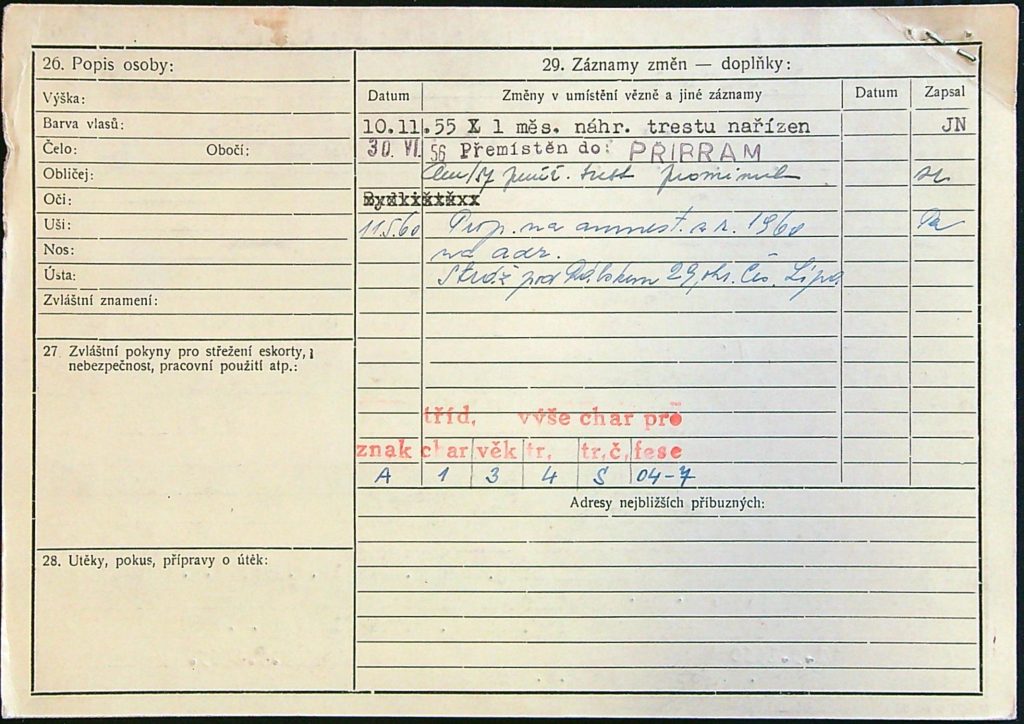 26. Popis osoby:
Výška:
Barva vlasů:
Čelo: Obočí:
Obličej:
Oči:
Uši:
Nos:
Ústa:
Zvláštní znamení:
27 Zvláštní pokyny pro střežení eskorty,
nebezpečnost, pracovní použití atp.:
28. Utěky, pokus, přípravy o útěk:
29. Záznamy změn — doplňky:
Datum Změny v umístění vězně a jiné záznamy Datum Zapsal
10.11.55 X 1 měs. náhr. trestu nařízen JN
30. VI. 56 Přemístěn do: PŘÍBRAM
trest prominut
11.5.60 Prop. na amnest. z r. 1960
na adr.
Stráž pod Rálskem 29, okr. Čes. Lípa
tříd. výše char pro
znak char věk tr. tr.č. fese
A 1 3 4 S 04-7
Adresy nejbližších příbuzných: